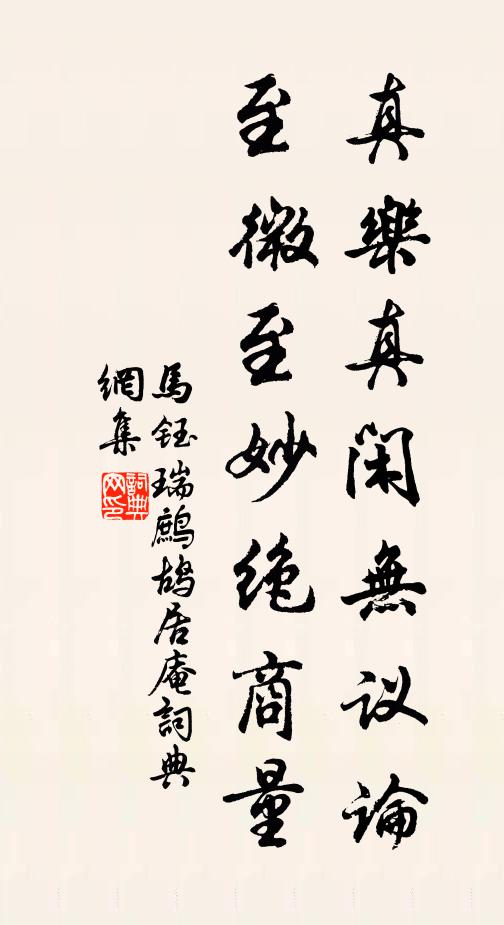 真樂真閑無议論
至微至妙絶商量
馬鈺瑞鷓鴣居庵詞典
網集
詞典网印